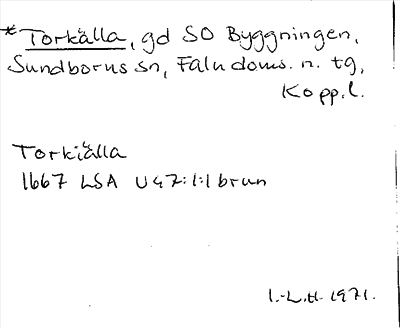 * Torkälla, gd SO Byggningen,
Sundborns sn, Falu doms. n. tg,
Kopp.l.
Torkiälla
1667 LSA U47:1:1 brun
I.-L.H. 1971.